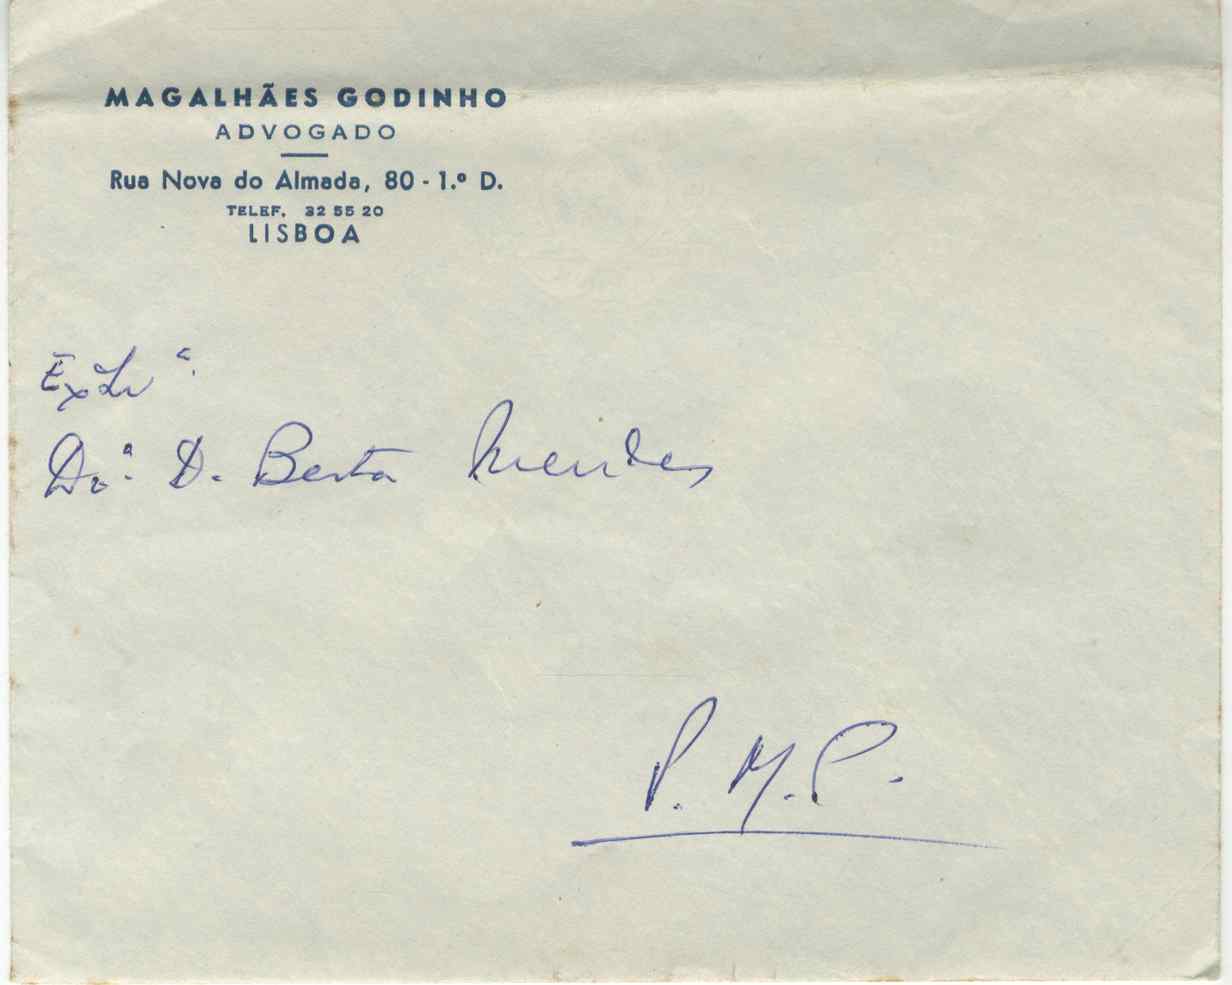 MAGALHÃES GODINHO
ADVOGADO
Rua Nova do Almada, 80 - 1.º D.
TELEF. 32 55 20
LISBOA
Drª. D. Berta Mendes
P. M. P.